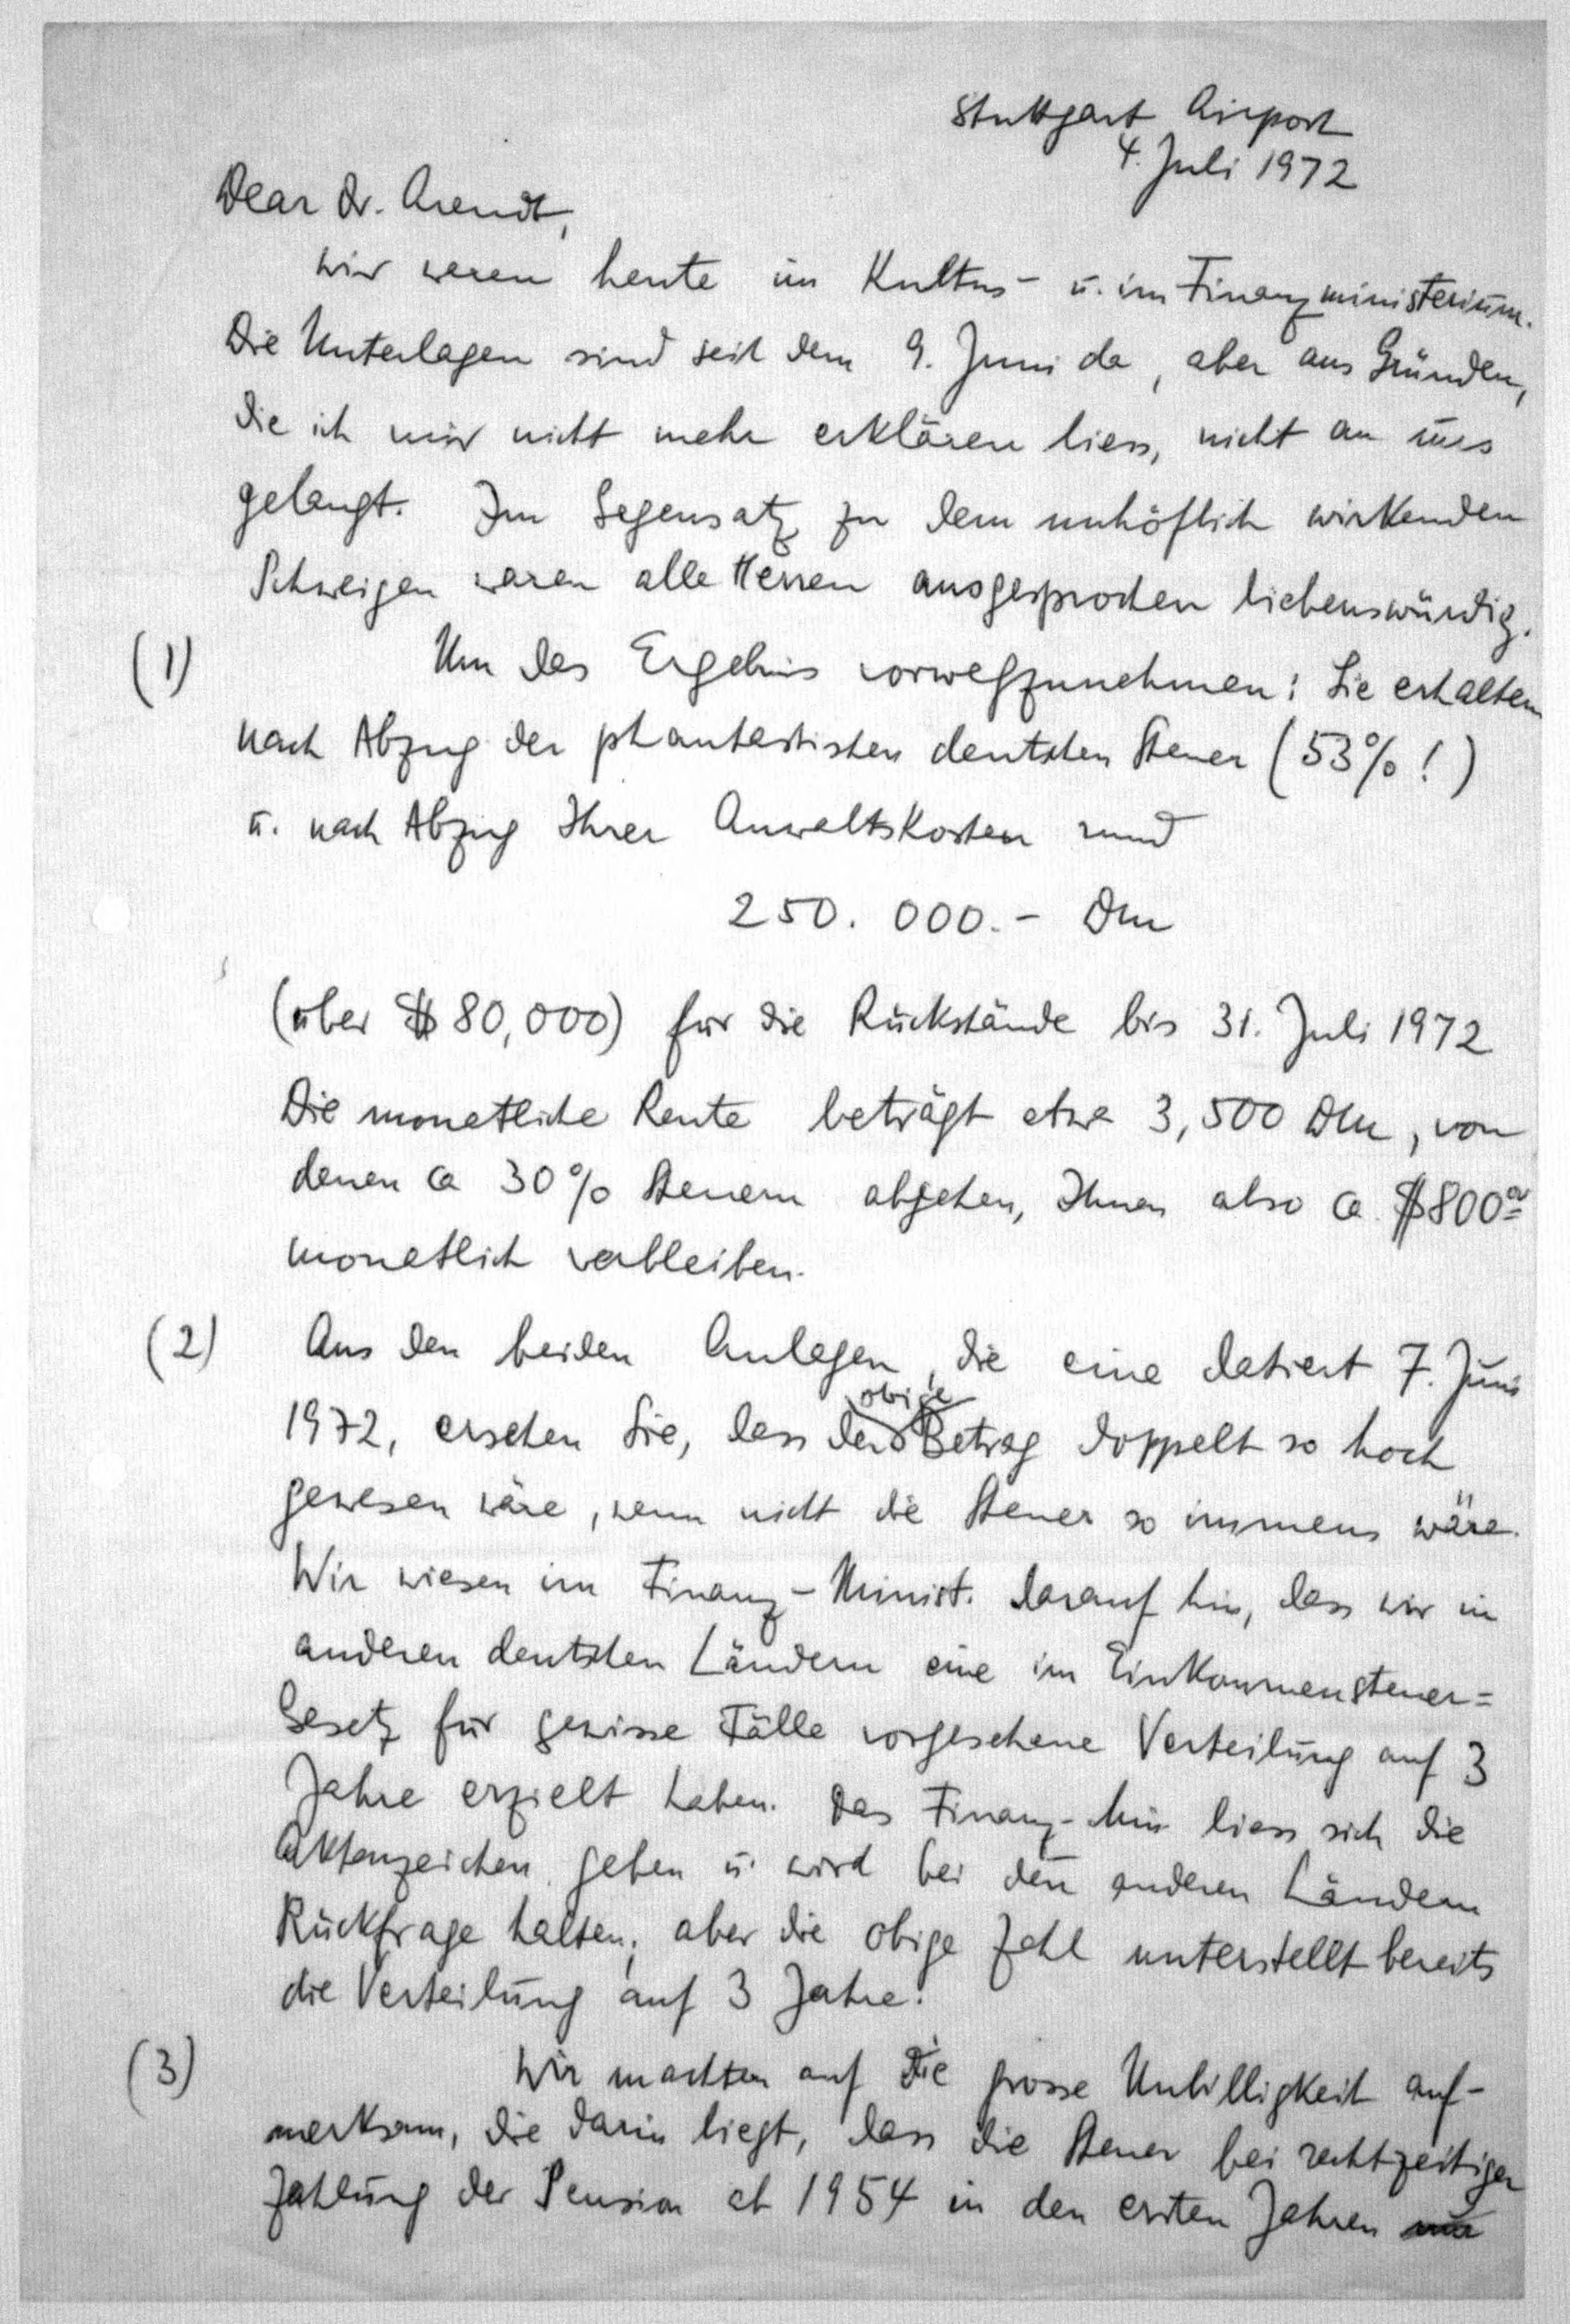 Stuttgart Airport
4. Juli 1972
Dear Dr. Arendt,
wir waren heute im Kultus- u. im Finanzministerium.
Die Unterlagen sind seit dem 9. Juni da, aber aus Gründen,
die ich mir nicht mehr erklären liess, nicht an uns
gelangt. Im Gegensatz zu dem unhöflich wirkenden
Schweigen waren alle Herren ausgesprochen liebenswürdig.
(1) Um das Ergebnis vorwegzunehmen: Sie erhalten
nach Abzug der phantastischen deutschen Steuer (53%!)
u. nach Abzug Ihrer Anwaltskosten rund
250.000.- DM
(über $ 80,000) für die Rückstände bis 31. Juli 1972
Die monatliche Rente beträgt etwa 3,500 DM, von
denen ca 30% Steuern abgehen, Ihnen also ca. $800
monatlich verbleiben.
(2) Aus den beiden Anlagen, die eine datiert 7. Juni
1972, ersehen Sie, dass der obige Betrag doppelt so hoch
gewesen wäre, wenn nicht die Steuer so immens wäre.
Wir wiesen im Finanz-Minist. darauf hin, dass wir in
anderen deutschen Ländern eine im Einkommensteuer=
Gesetz für gewisse Fälle vorgesehene Verteilung auf 3
Jahre erzielt haben. Das Finanz-Min liess sich die
Aktenzeichen geben u. wird bei den anderen Ländern
Rückfrage halten; aber die obige Zahl unterstellt bereits
die Verteilung auf 3 Jahre.
(3) Wir machten auf die grosse Unbilligkeit auf-
merksam, die darin liegt, dass die Steuer bei rechtzeitiger
Zahlung der Pension ab 1954 in den ersten Jahren